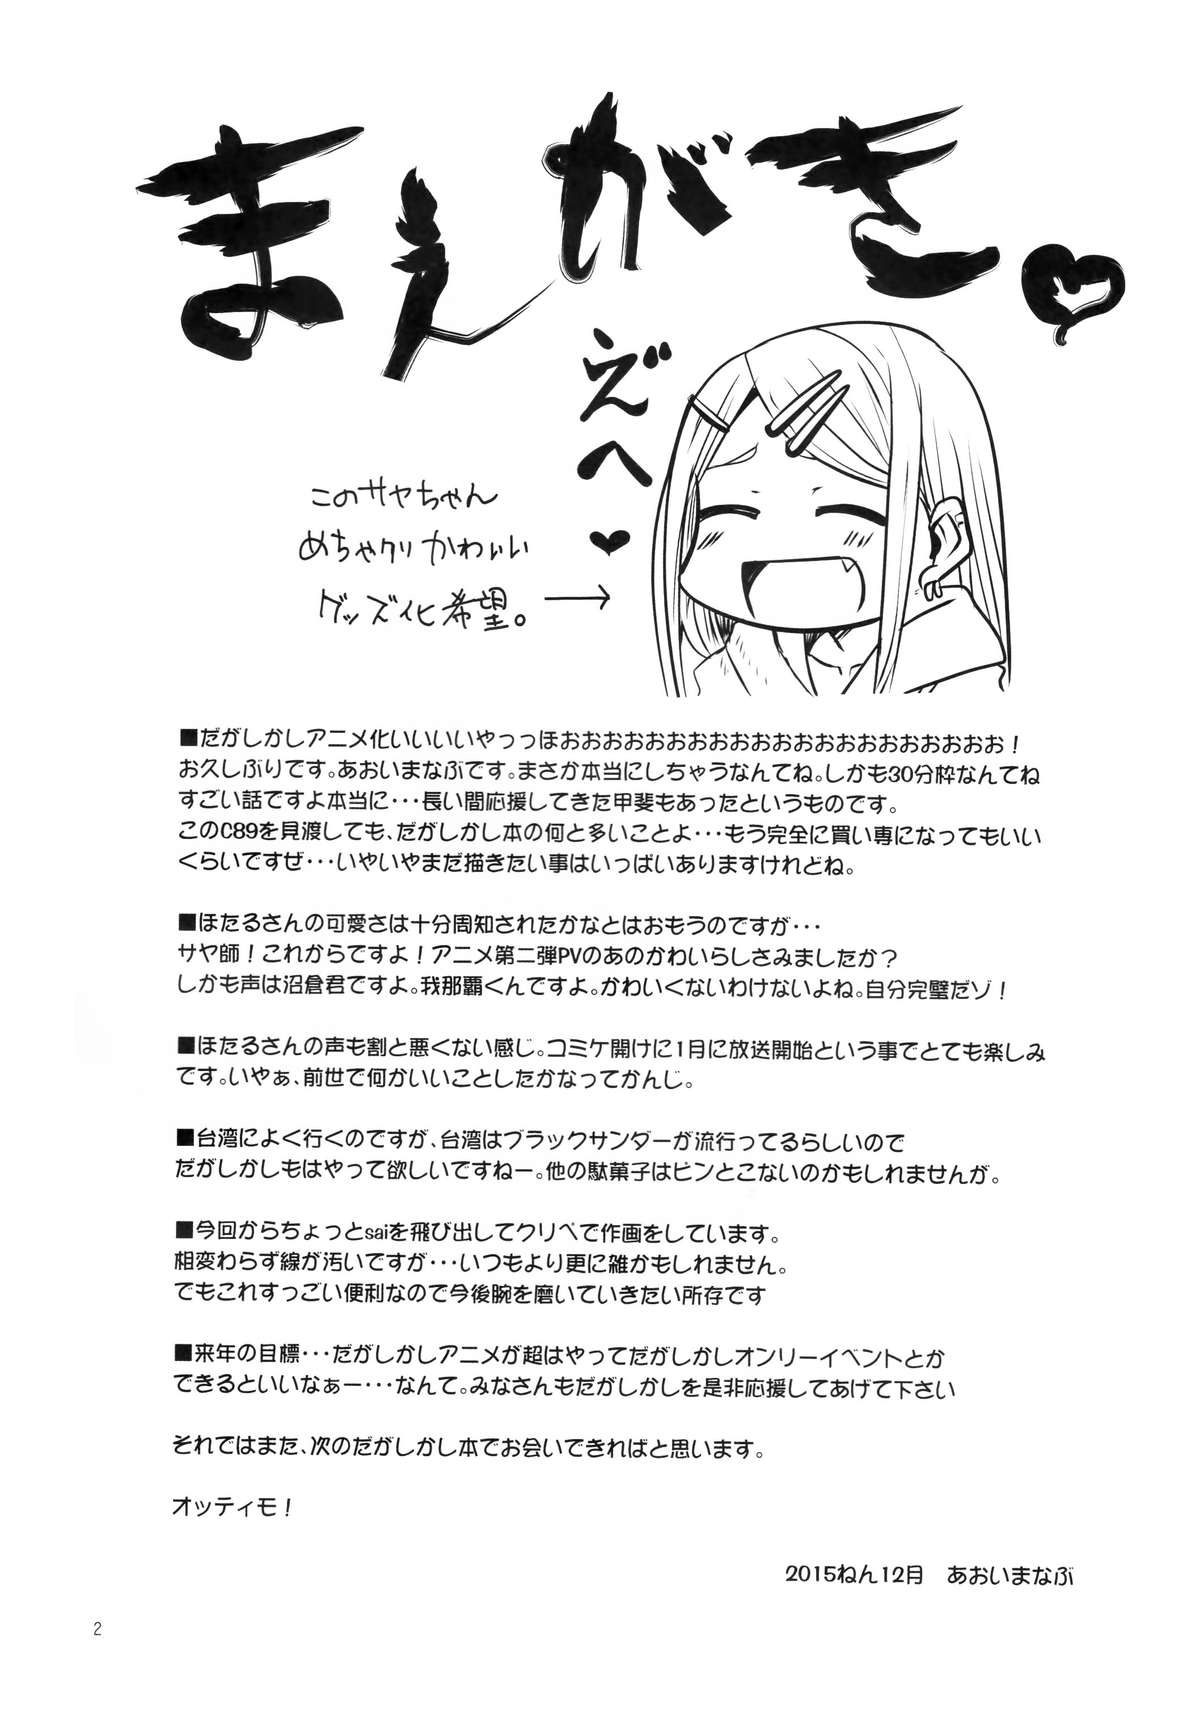 まえがき
えへ゛
このサヤちゃん
めちゃクリかわいい
グッズ化希望。
■だがしかしアニメ化いいいいやっっほおおおおおおおおおおおおおおおおおおおおお！
お久しぶりです。あおいまなぶです。まさか本当にしちゃうなんてね。しかも30分枠なんてね
すごい話ですよ本当に・・・長い間応援してきた甲斐もあったというものです。
このC89を見渡しても、だがしかし本の何と多いことよ・・・もう完全に買い専になってもいい
くらいですぜ・・・いやいやまだ描きたい事はいっぱいありますけれどね。
■ほたるさんの可愛さは十分周知されたかなとはおもうのですが・・・
サヤ師！これからですよ！アニメ第二弾PVのあのかわいらしさみましたか？
しかも声は沼倉君ですよ。我那覇くんですよ。かわいくないわけないよね。自分完璧だゾ！
■ほたるさんの声も割と悪くない感じ。コミケ開けに1月に放送開始という事でとても楽しみ
です。いやぁ、前世で何かいいことしたかなってかんじ。
■台湾によく行くのですが、台湾はブラックサンダーが流行ってるらしいので
だがしかしもはやって欲しいですねー。他の駄菓子はピンとこないのかもしれませんが。
■今回からちょっとsaiを飛び出してクリペで作画をしています。
相変わらず線が汚いですが・・・いつもより更に雑かもしれません。
でもこれすっごい便利なので今後腕を磨いていきたい所存です
■来年の目標・・・だがしかしアニメが超はやってだがしかしオンリーイベントとか
できるといいなぁー・・・なんて。みなさんもだがしかしを是非応援してあげて下さい
それではまた、次のだがしかし本でお会いできればと思います。
オッティモ！
2015ねん12月　あおいまなぶ
2